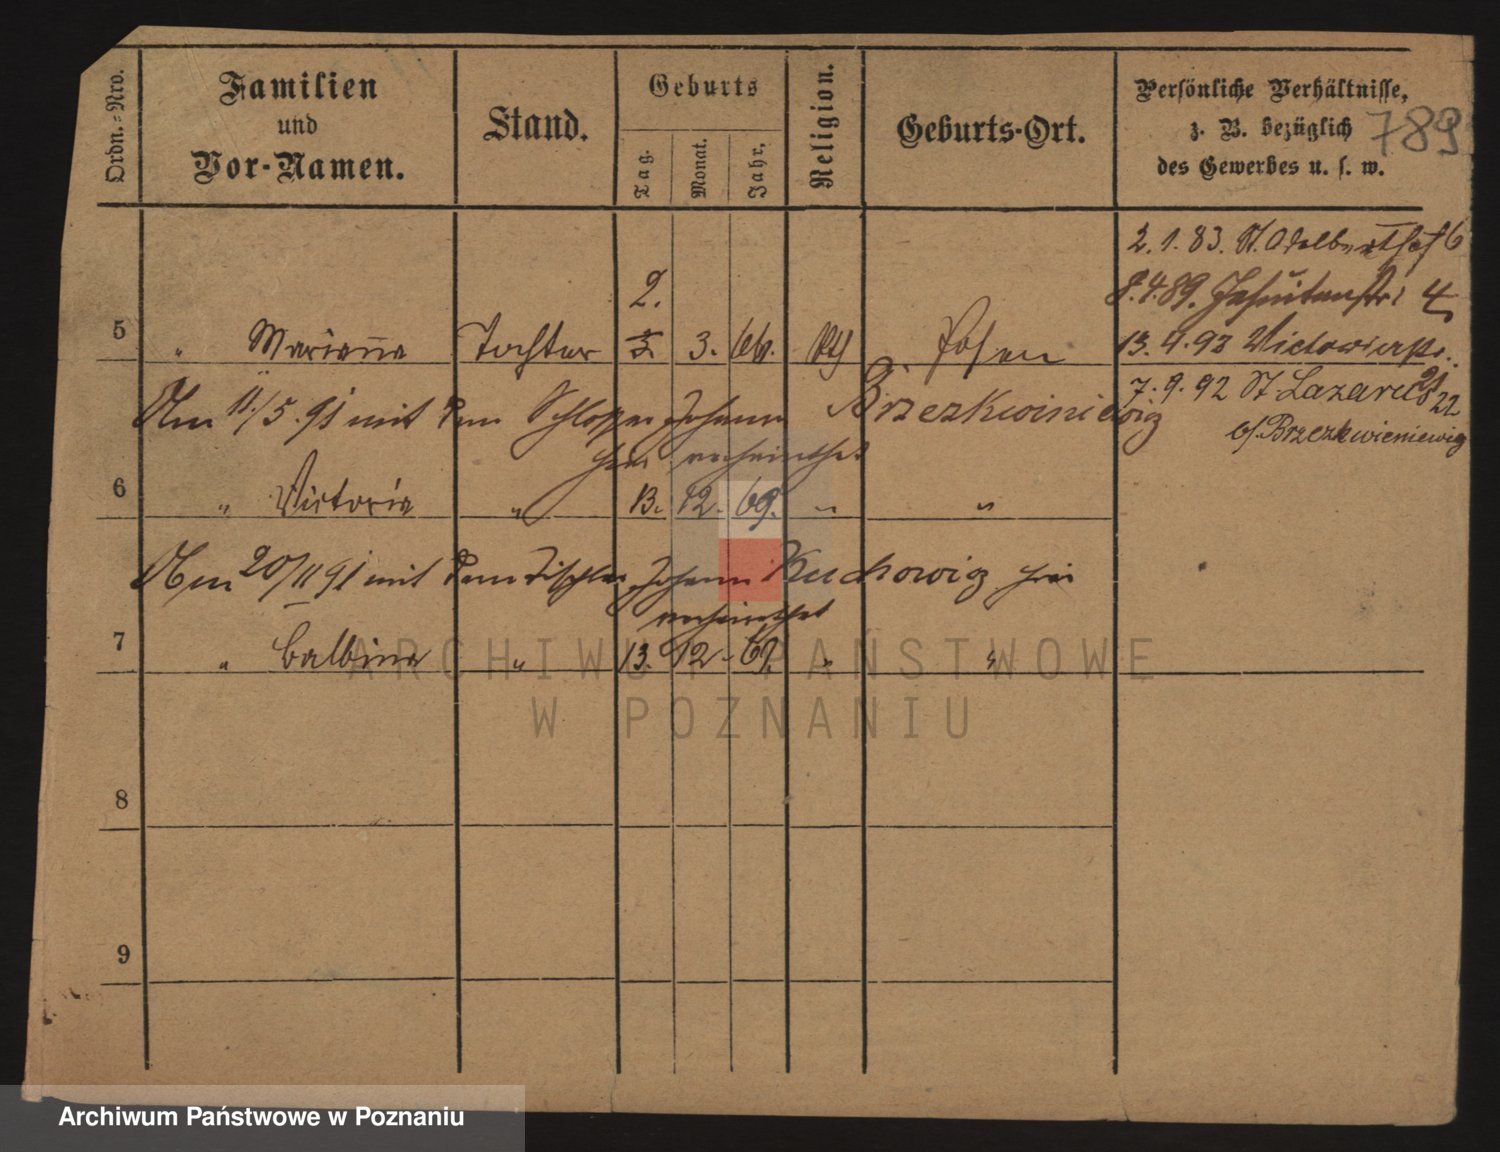 Ordn.-Nro.
Familien
und
Vor-Namen.
Stand.
Geburts
Tag.
Monat.
Jahr,
Religion.
Geburts-Ort.
Persönliche Verhältnisse,
z. B. bezüglich
des Gewerbes u. s. w.
789
2. 1. 83. St. Adalbertstr 6
8. 4. 89. Jesuitenstr. 4
2.
5 " Marianna Tochter 3. 3. 66. Kth Posen
13. 4. 92
7. 9. 92 St Lazarus 22
b/ Brzezkwieniewig
Am 11./5. 91 mit dem Schlosser Johann Brzezkwiniewig
hier verheirathet
6 " Victoria " 13. 12. 69. " "
Am 20/11 91 mit dem Tischler Johann Kuchowicz hier
verheirathet
7 " Balbina " 13. 12. " "
8
9
ARCHIWUM PAŃSTWOWE
W POZNANIU
Archiwum Państwowe w Poznaniu